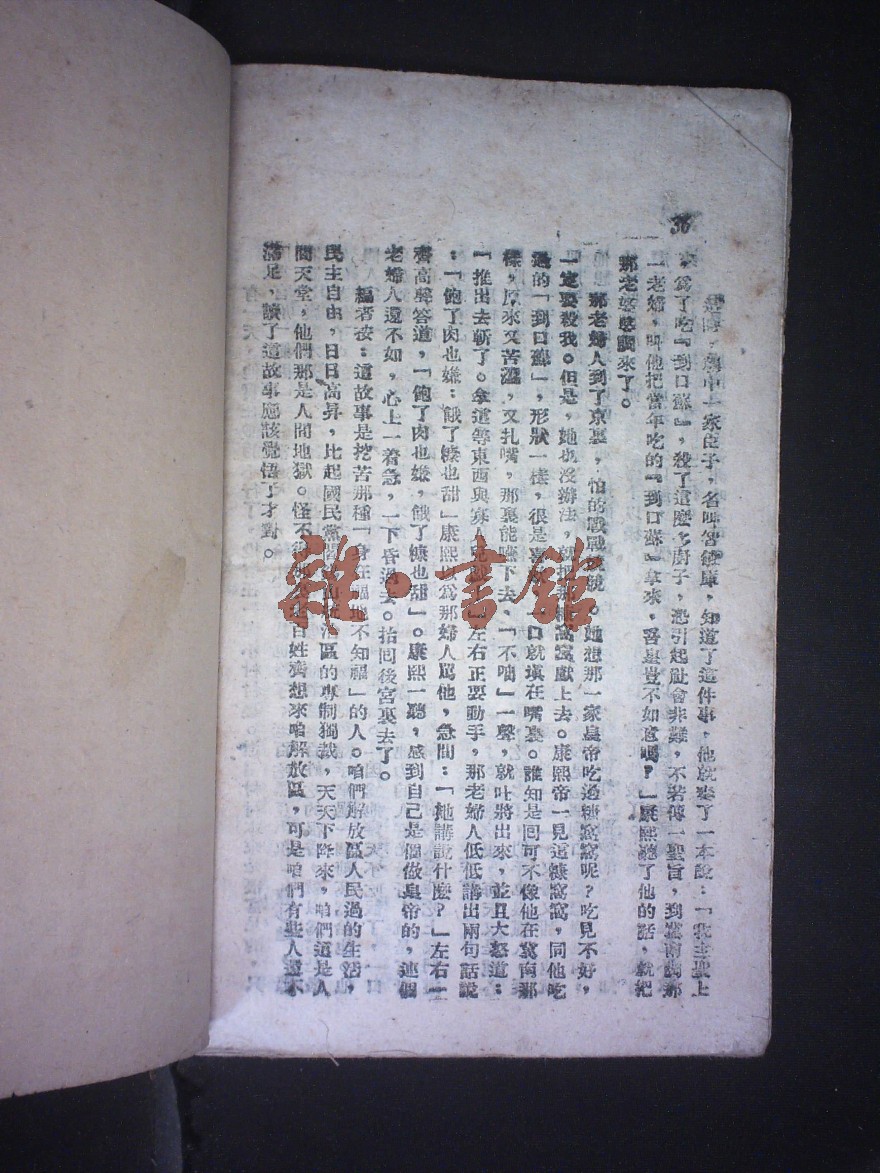 36
這時,朝中一家良子,名叫智敏庫,知道了這件事,他就奏了一本說:「我主聖上
,爲了吃『到口蘇』,殺了這麽多廚子,恐引起社會非難,不若傳一聖旨,到冀南調那
一老婦,叫他把當年吃的『到口蘇』拿來,吾皇豈不如意嗎?」康熙聽了他的話,就把
那老婆婆調來了。
那老婦人到了京裏,怕的戰戰兢兢。她想那一家皇帝吃過糠窩窩呢?吃見不好,
一定要殺我。但是,她也沒辦法,就把那糠窩窩獻上去。康熙帝一見這糠窩窩,同他吃
過的「到口蘇」,形狀一樣,很是喜歡,一口就填在嘴裏。誰知是回可不像他在冀南那
樣,原來又苦澀,又扎嘴,那裏能嚥下去、「不啃」一聲,就吐將出來,並且大怒道:
「推出去斬了。拿這等東西與寡人兒戲」左右正要動手,那老婦人低低講出兩句話說
:「飽了肉也嫌:餓了糠也甜」康熙以爲那婦人罵他,急問:「她講說什麽?」左右一
齊高聲答道,「飽了肉也嫌,餓了糠也甜」。康熙一聽,感到自己是個做皇帝的,連個
老婦人還不如,心上一着急,一下昏過去。抬回後宮裏去了。
編者按:這故事是挖苦那種「身在福地不知福」的人。咱們解放區人民過的生活,
民主自由,日日高昇,比起國民黨閻 區的專制獨裁,天天下降來,咱們這是人
間天堂,他們那是人間地獄。怪不得 百姓齊想來咱解放區,可是咱們有些人還不
滿足,讀了這故事應該覺悟了才對。
雜·書館